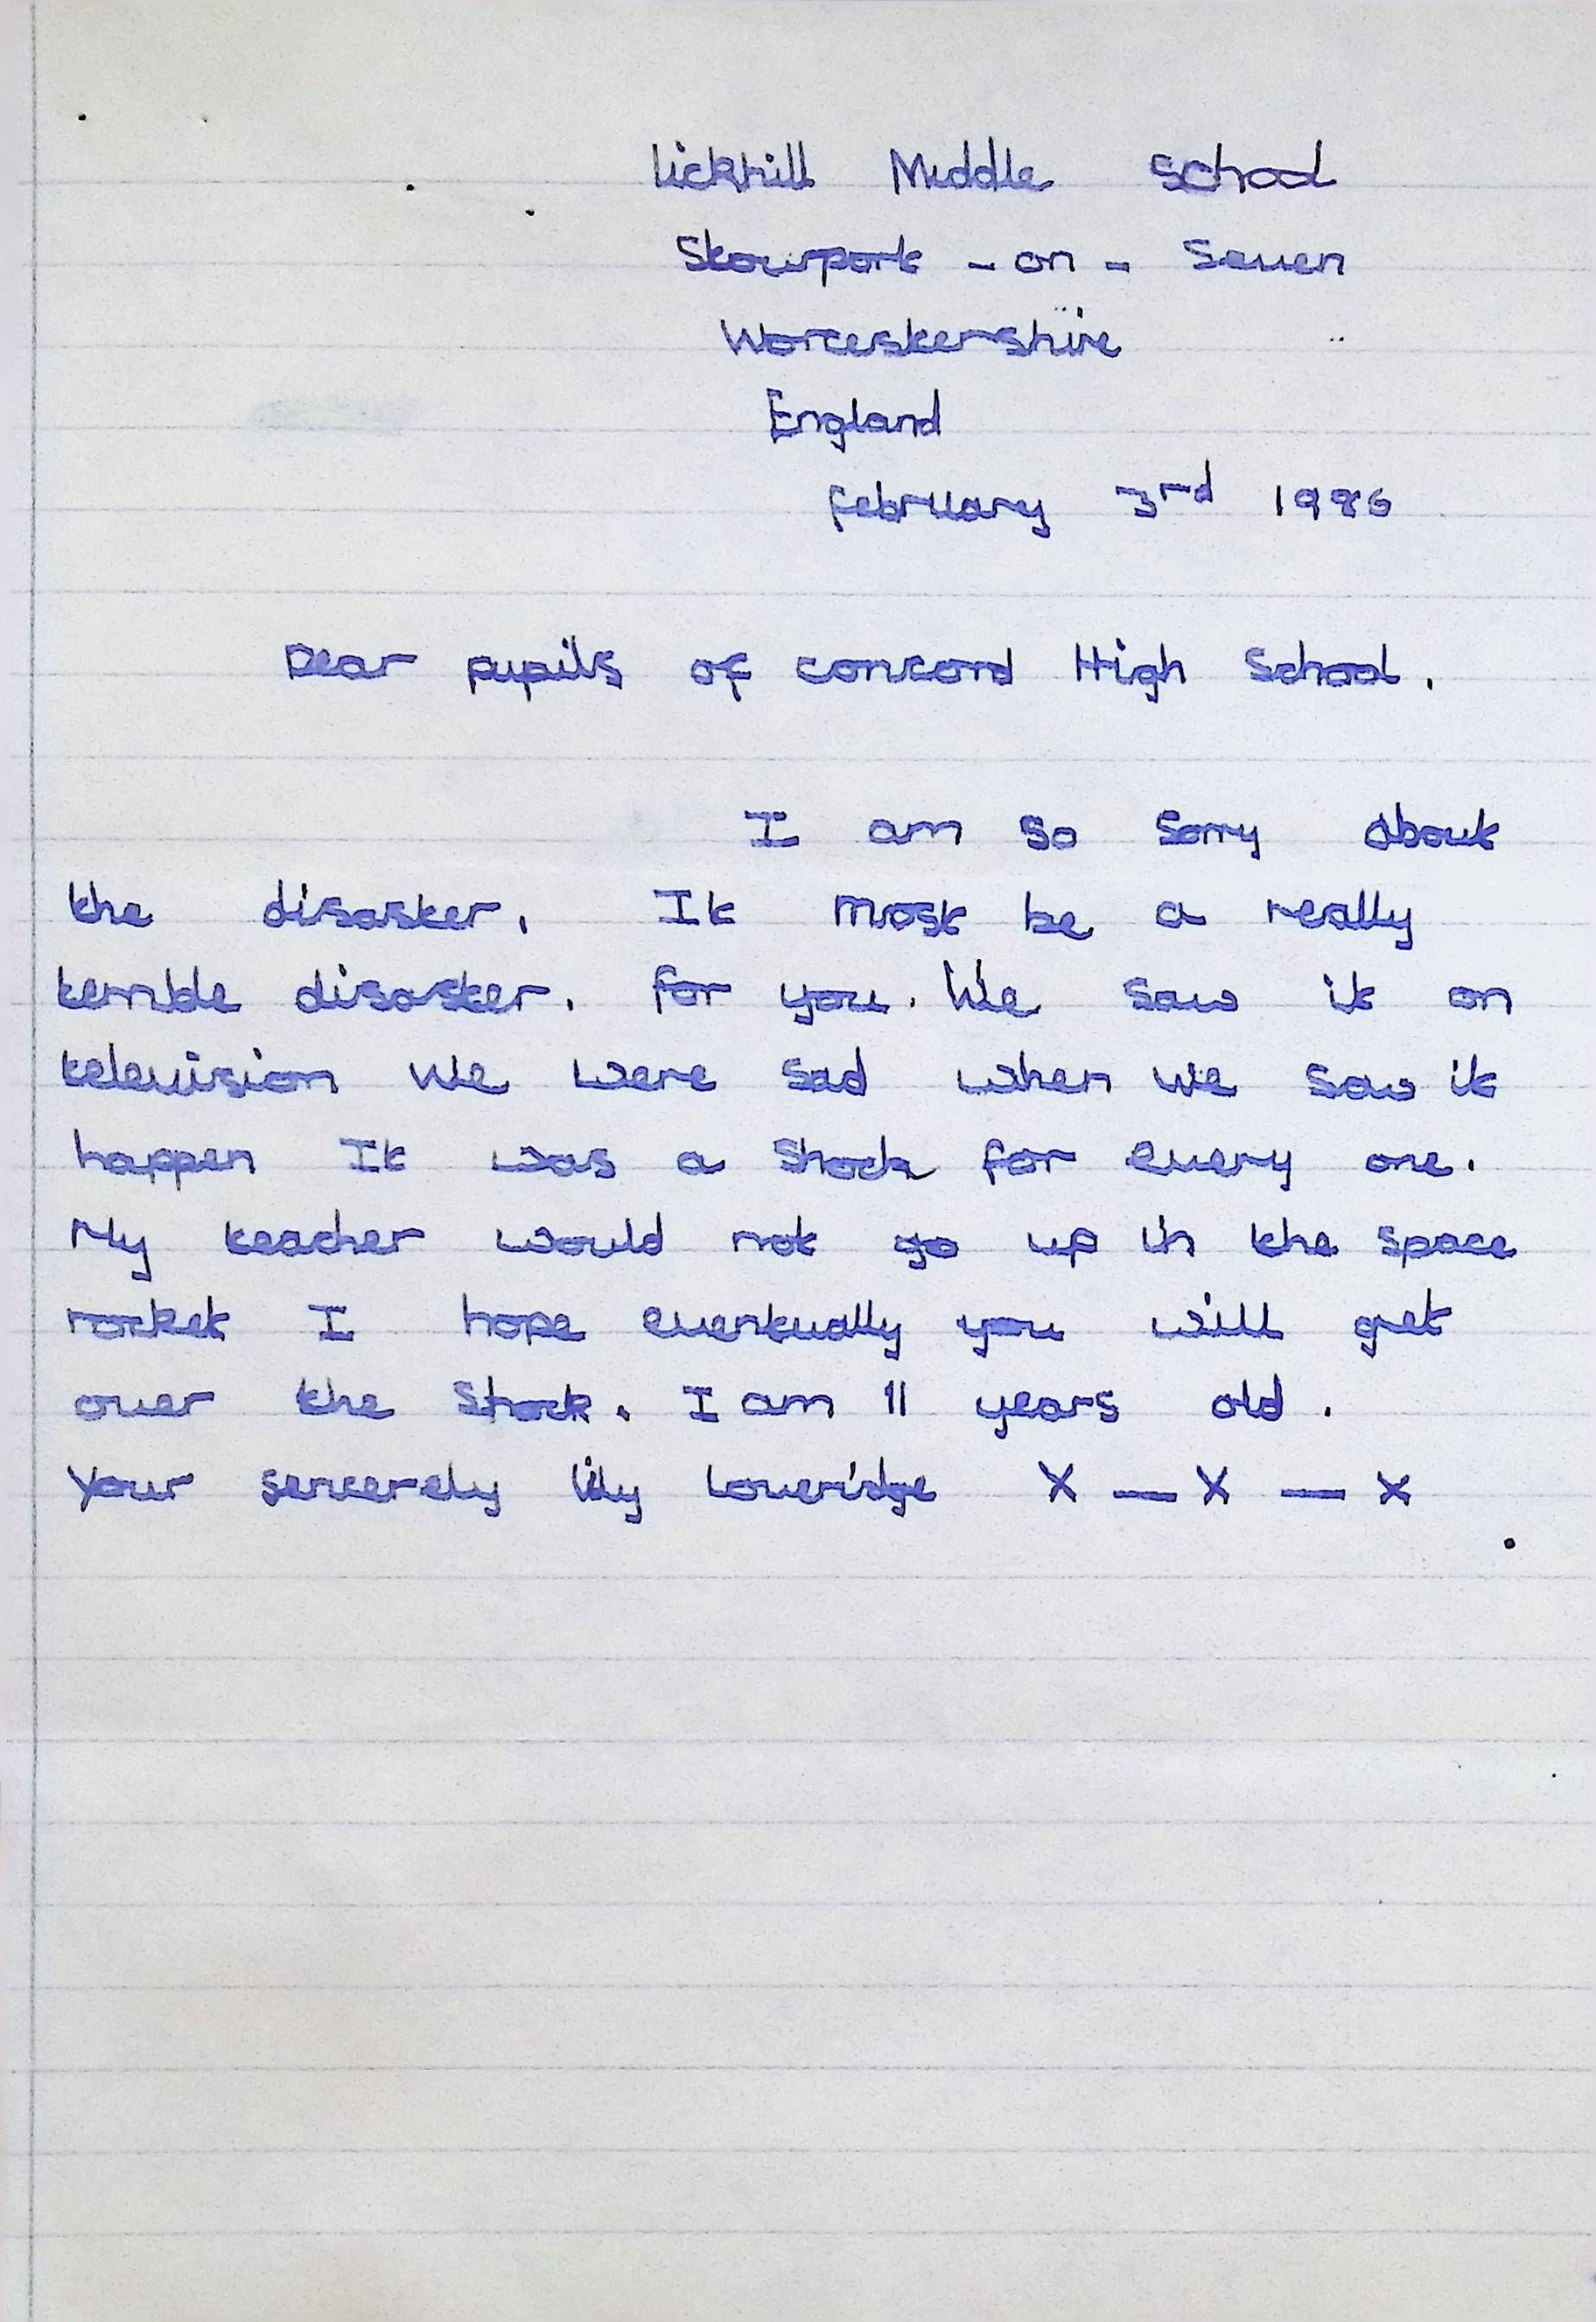 lickhill Middle School
Stourport - on - Seven
Worcestershire
England
february 3rd 1986
Dear pupils of concord High School.
I am so sorry about
the disaster. It most be a really
terrible disaster. for you. We saw it on
television we were sad when we saw it
happen It was a shock for every one.
My teacher would not go up in the space
rocket I hope eventually you will get
over the shock. I am 11 years old.
Your sencerely lily Loveridge X — X — X